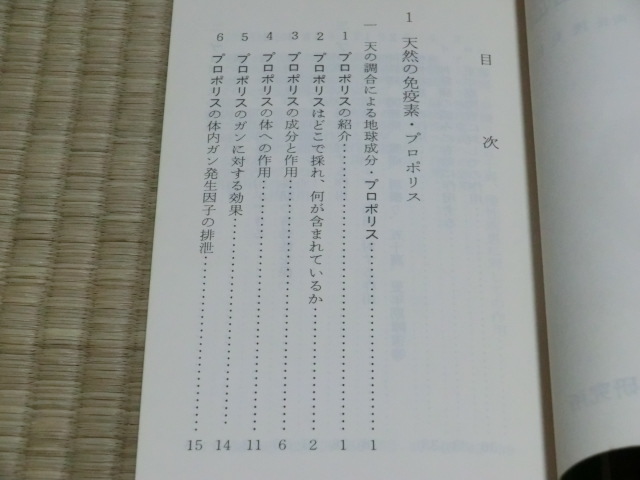 目次
1 天然の免疫素・プロポリス
一 天の調合による地球成分・プロポリス……………………1
1 プロポリスの紹介……………………1
2 プロポリスはどこで採れ、何が含まれているか……………………2
3 プロポリスの成分と作用……………………6
4 プロポリスの体への作用……………………11
5 プロポリスのガンに対する効果……………………14
6 プロポリスの体内ガン発生因子の排泄……………………15